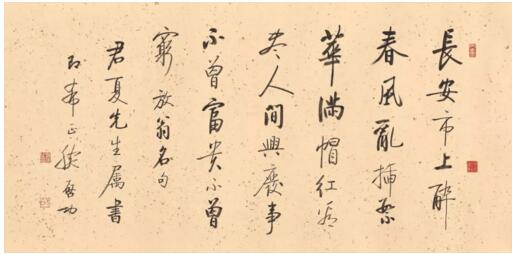 長安市上醉
春風亂插繁
華滿帽紅看
尽人間興廢事
不曾富貴不曾
窮 放翁名句
君夏先生属書
即希正腕 啓功